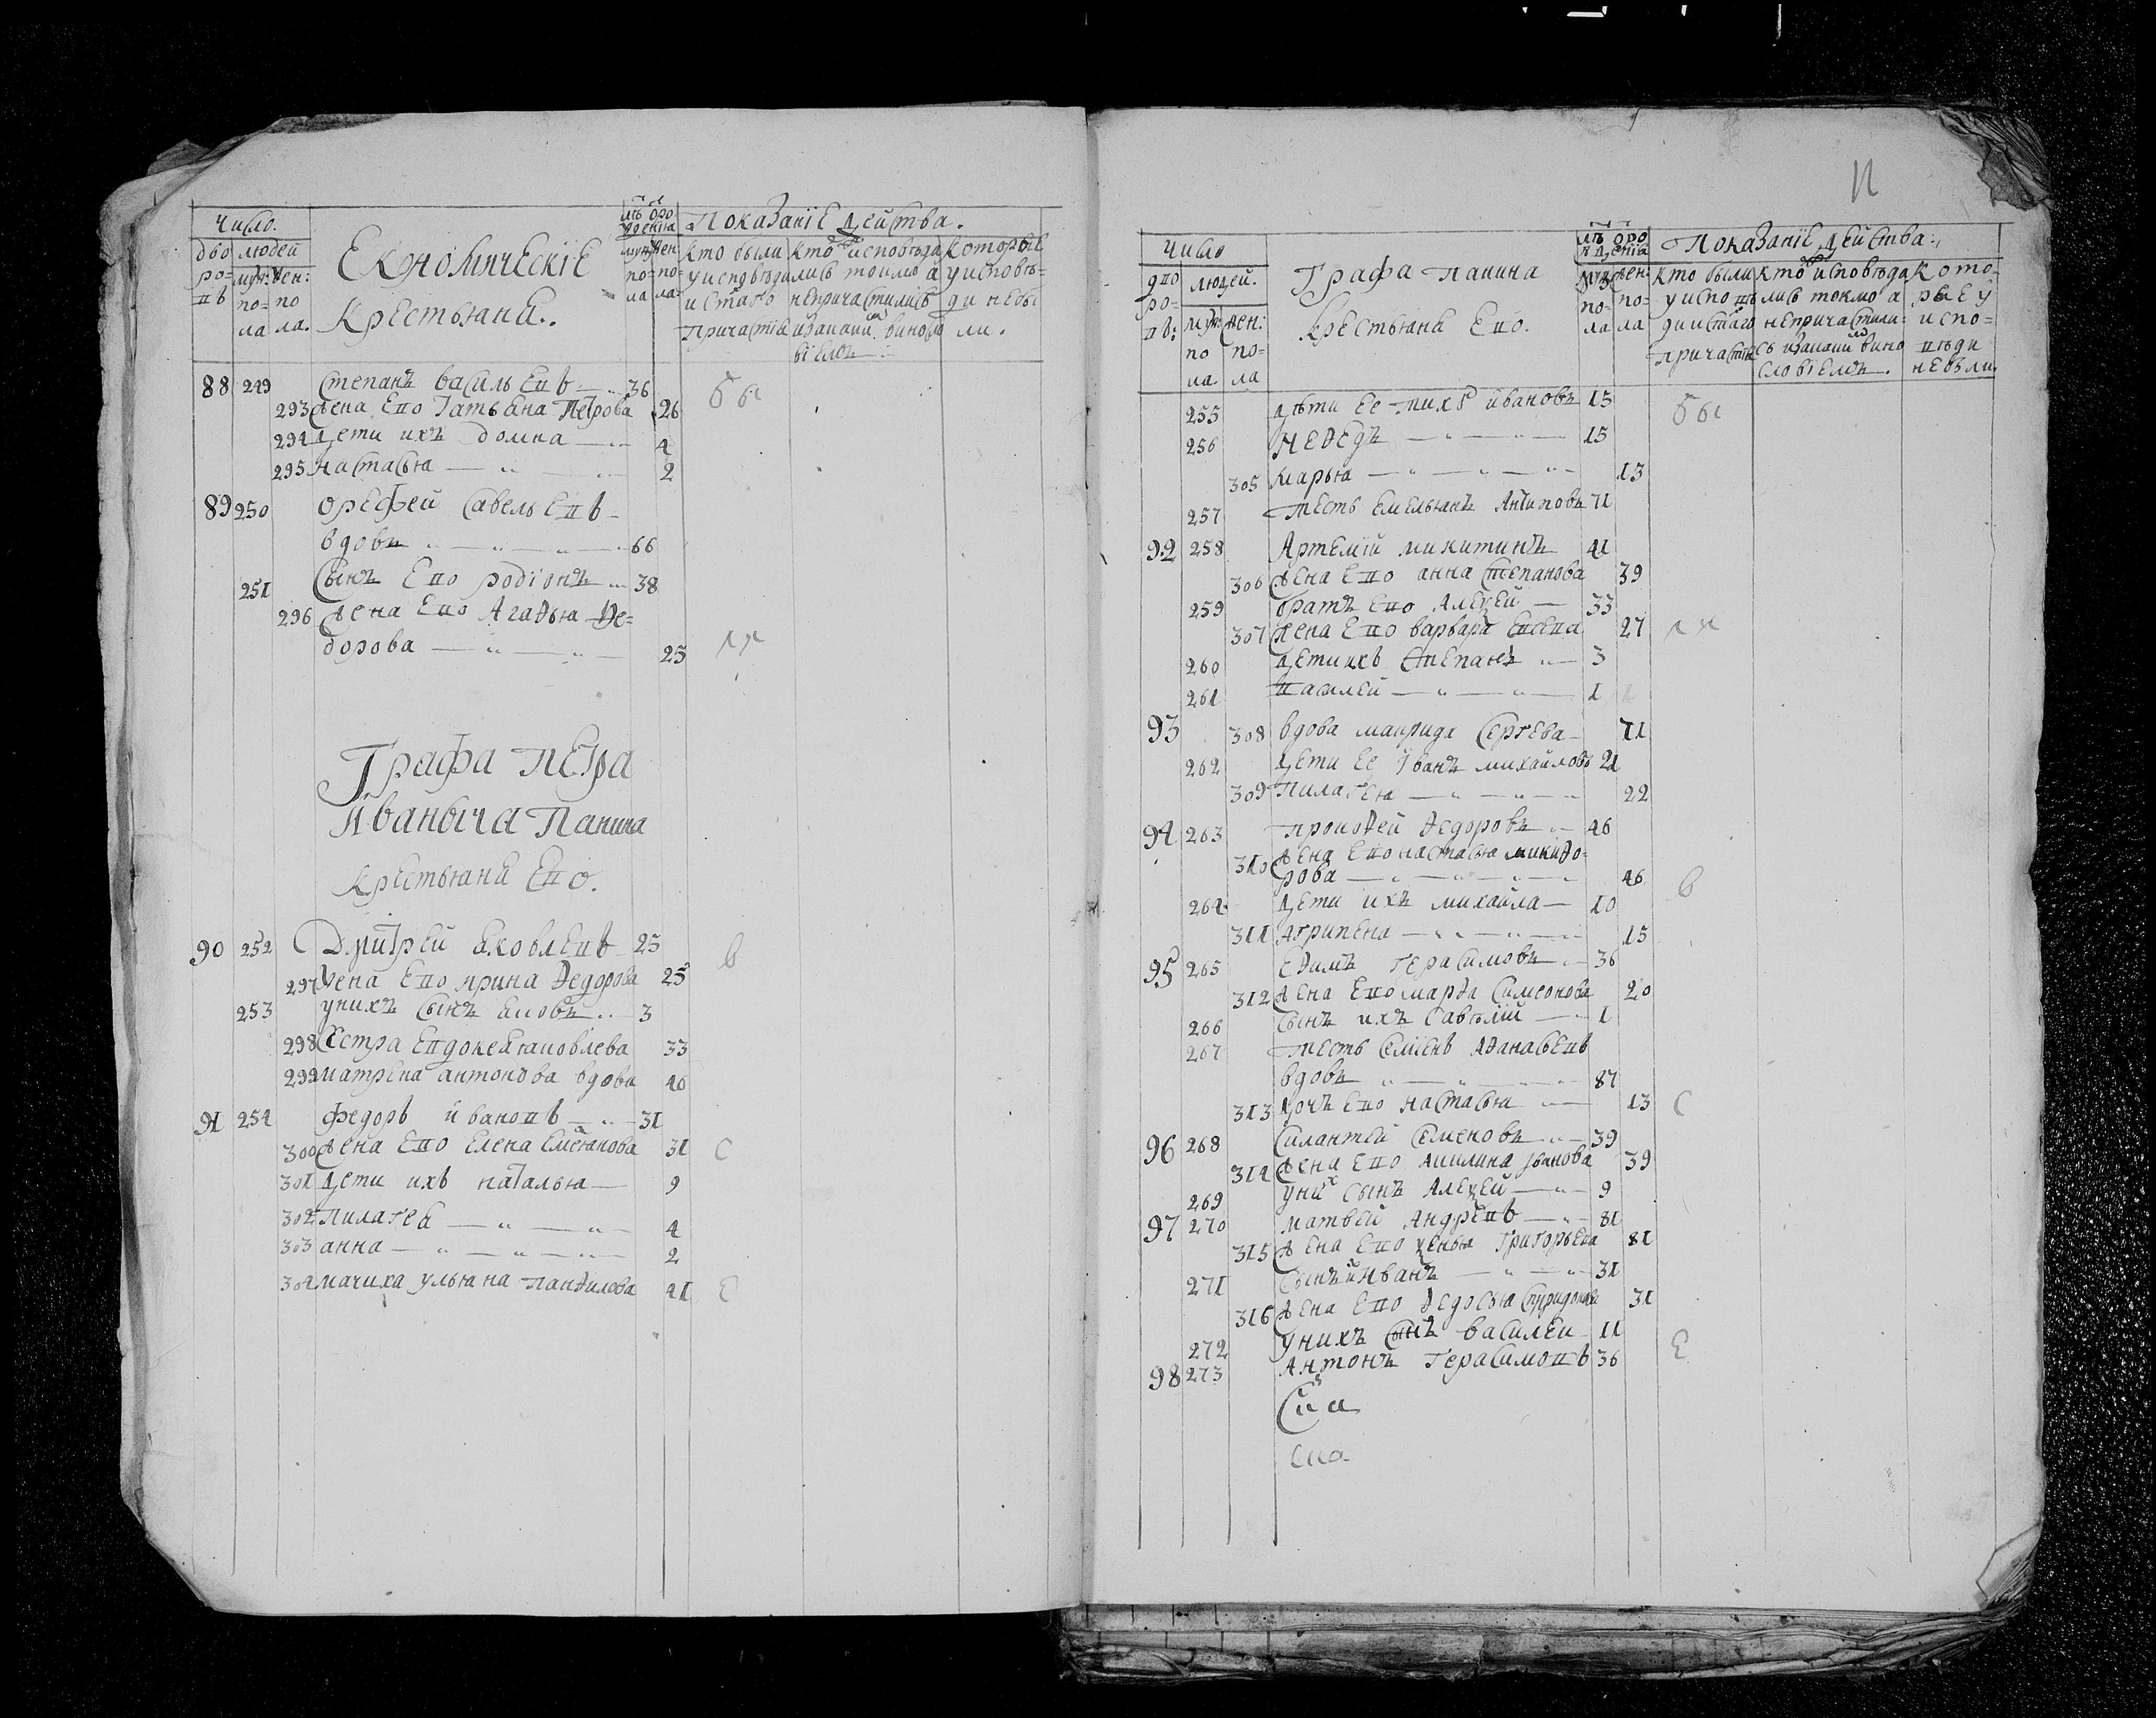 Число.
дво
ро=
въ
людей
муж:
по=
ла
жен:
по
ла.
Економическїе
крестьянѣ..
лѣ оро
жденїа
муж
по=
ла
жен
по=
ла=
Показанїе действа.
кто были
у исповѣди
и стаго
причастїа
кто исповѣда
лись токмо а
непричастились
вїемъ
которые
у исповѣ=
ди небы
ли.
88 249 Степанъ василь евъ 36
293 жена ево Татьяна Петрова 26
294 дети ихъ домна 4
295 настасья 2
89 250 орефей Савель евъ
вдовъ 66
251 Сынъ Ево родїонъ 38
296 жена Ево Агафья Фе=
дорова 25
бы
Графа Петра
Иваныча Панина
крестьяне Ево.
90 252 Дмитрей Яковлевъ 25
297 жена Ево ирина Федорова 25
253 унихъ Сынъ 3
298 Сестра Евдокея яковлева 33
299 матрена антонова вдова 46
91 254 Федоръ ивановъ 31
300 жена Ево Елена Емельянова 31
301 дети ихъ наталья 9
302 Пилагея 4
303 анна 2
304 мачиха ульяна Панфилова 41
в
с
е
Число
дво
ро=
въ:
людей.
муж:
по
ла
жен:
по=
ла
Графа панина
крестьяне Ево.
лѣ оро
ждѣнїа
муж
по=
ла
жен:
по=
ла
Показанїе действа:
кто были
у испо вѣ
ди и стаго
причастїа
кто исповѣда
лись токмо а
непричастили=
сь
вїемъ.
кото=
рые у
испо=
вѣди
небыли.
255 дѣти ее ивановъ 15
256 нефедъ 15
305 марья 13
257 тесть Емельянъ Антиповъ 71
92 258 Артемїй микитинъ 41
306 жена Ево анна Степанова 39
259 братъ Ево Алеѯей 33
307 жена Ево варвара 27
260 дети ихъ Степанъ 3
261 василей 1
93 308 вдова маврида Сергева 71
262 дети ее Иванъ михайловъ 21
309 Пилагея 22
94 263 прокофей Федоровъ 46
310 жена Ево настасья никифо=
рова 46
264 дети ихъ михайла 10
311 Агрипена 15
95 265 ефимъ герасимовъ 36
312 жена Ево марфа Симеонова 20
266 Сынъ ихъ Савѣлїй 1
267 тесть Семїенъ Афанасьевъ
вдовъ 87
313 дочъ Ево настасья 13
96 268 Силантей Семеновъ 39
314 жена Ево Акилина Иванова 39
269 уних Сынъ Алеѯей 9
97 270 матвей Андреевъ 81
315 жена Ево ѯенья григорьева 81
271 Сынъ Иванъ 31
316 жена Ево Федосья Спиридонова 31
272 унихъ Сынъ василеи 11
98 273 Антонъ герасимовъ 36
бы
в
с
е